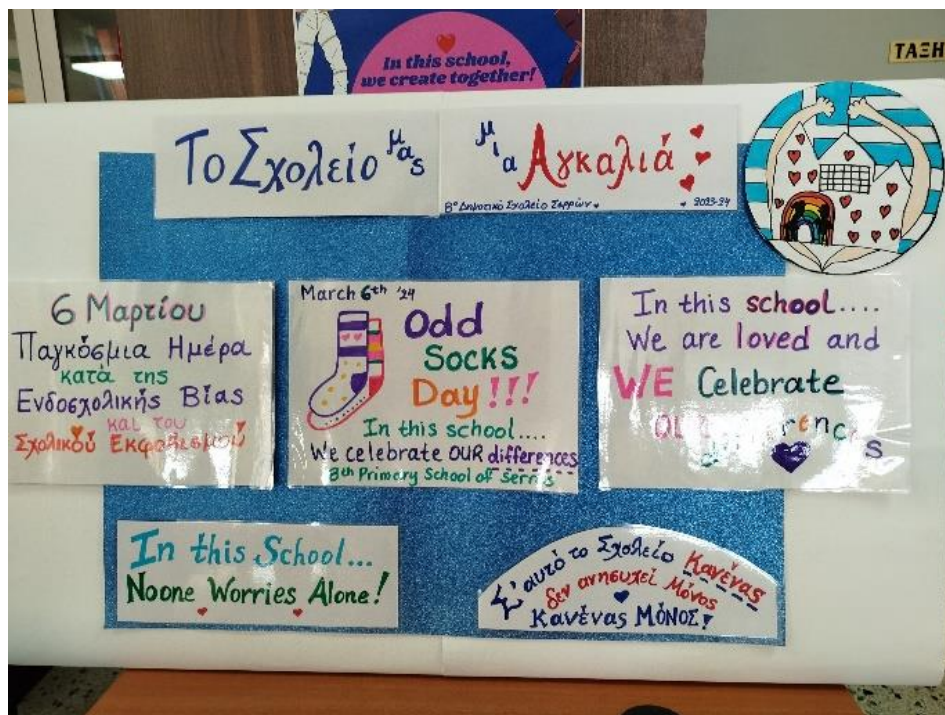 In this school,
we create together!
ΤΑΞΗ
Το Σχολείο μας
μια Αγκαλιά
8ο Δημοτικό Σχολείο Σερρών
2023-24
6 Μαρτίου
Παγκόσμια Ημέρα
κατά της
Ενδοσχολικής Βίας
και του
Σχολικού Εκφοβισμού
March 6th '24
Odd
Socks
Day!!!
In this school....
We celebrate OUR differences
8th Primary School of Serres
In this school....
We are loved and
WE Celebrate
our differences
In this School...
Noone Worries Alone!
Σ' αυτό το Σχολείο Κανένας
δεν ανησυχεί Μόνος
Κανένας ΜΌΝΟΣ!